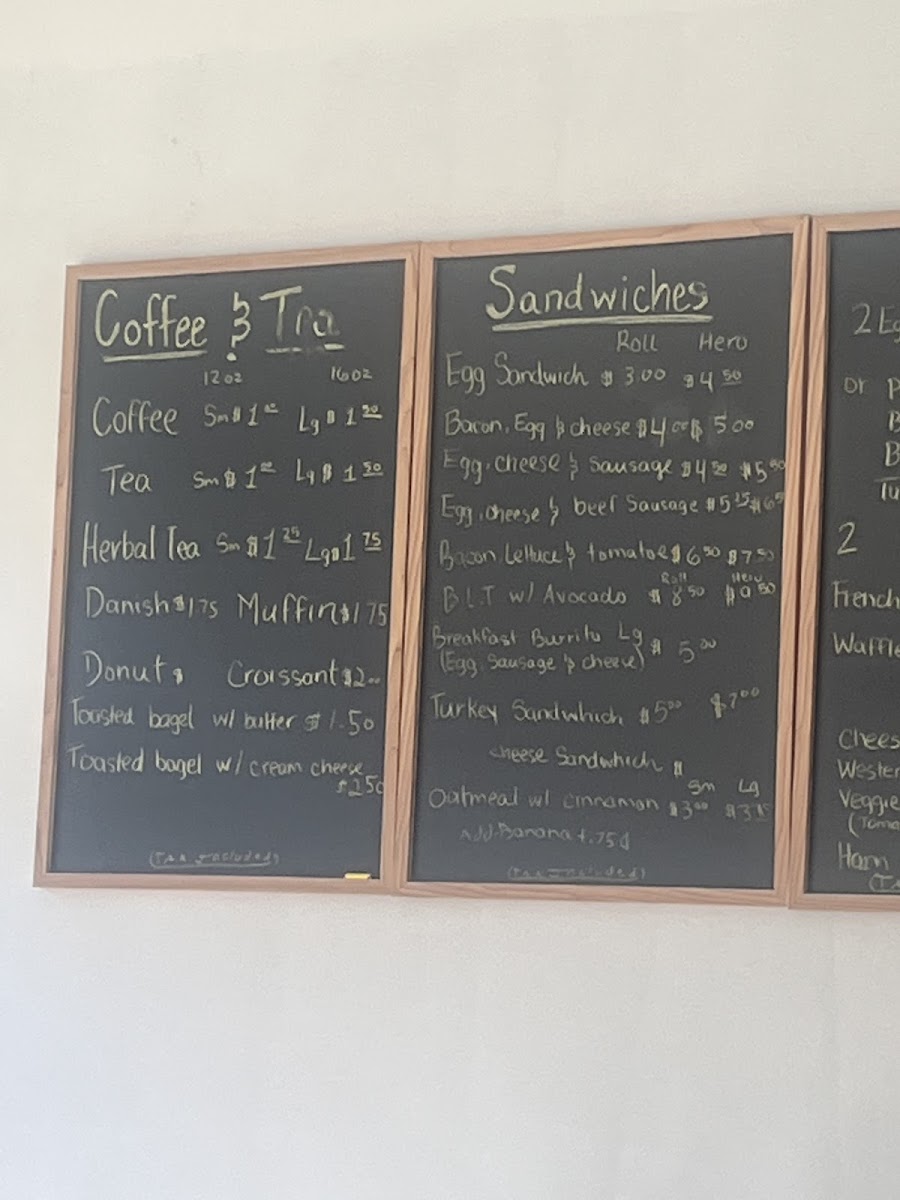 Coffee & Tea
12oz 16oz
Coffee Sm $1 Lg $1.50
Tea Sm $1 Lg $1.50
Herbal Tea Sm $1.25 Lg $1.75
Danish $1.75 Muffin $1.75
Donut $ Croissant $2.00
Toasted bagel w/ butter $1.50
Toasted bagel w/ cream cheese
$2.50
(Tax Included)
Sandwiches
Roll Hero
Egg Sandwich $3.00 $4.50
Bacon, Egg & cheese $4.00 $5.00
Egg, cheese & Sausage $4.50 $5.50
Egg, cheese & beef Sausage
Bacon, Lettuce & tomatoe $6.50 $7.50
Roll Hero
B.L.T w/ Avocado $8.50 $9.50
Breakfast Burrito Lg $5.00
(Egg, Sausage & cheese)
Turkey Sandwhich $5.00 $7.00
cheese Sandwhich $
Sm Lg
Oatmeal w/ cinnamon $3.00
Add Banana +.75¢
(Tax Included)
2 Eg
or
2
French
Waffle
Chees
Wester
Veggie
(Toma
Ham